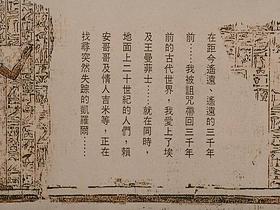 在距今遙遠、遙遠的三千年
前…我被詛咒帶回三千年
前的古代世界，我愛上了埃
及王曼菲士……就在同時，
地面上二十世紀的人們，賴
安哥哥及情人吉米等，正在
找尋突然失踪的凱羅爾……